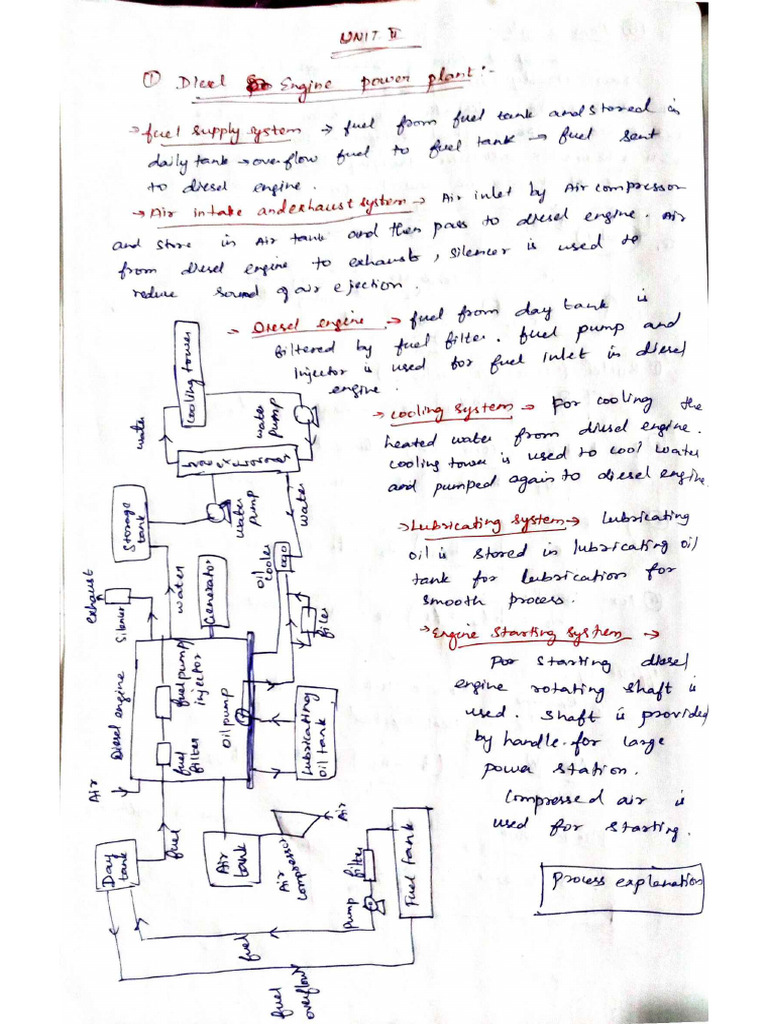 UNIT II
① Diesel Engine power plant:-
→ fuel supply system → fuel from fuel tank and stored in
daily tank → overflow fuel to fuel tank → fuel sent
to diesel engine.
→ Air intake and exhaust system → Air inlet by Air compressor
and store in Air tank and then pass to diesel engine. Air
from diesel engine to exhaust, silencer is used to
reduce sound of air ejection.
→ Diesel engine → fuel from day tank is
filtered by fuel filter. fuel pump and
injector is used for fuel inlet in diesel
engine.
→ cooling system → for cooling the
heated water from diesel engine.
cooling tower is used to cool water
and pumped again to diesel engine
→ Lubricating system → Lubricating
oil is stored in lubricating oil
tank for lubrication for
smooth process.
→ Engine starting system →
for starting diesel
engine rotating shaft is
used. shaft is provided
by handle. for large
power station.
compressed air is
used for starting.
process explanation
cooling tower
water
water
pump
Storage
tank
water
pump
water
exhaust
silencer
water
Generator
oil
cooler
filer
Diesel engine
fuel pump
injector
fuel
filter
oil pump
Lubricating
oil tank
Air
Day
tank
fuel
Air
tank
Air
compressor
Air
pump
filter
Fuel tank
fuel
fuel
overflow